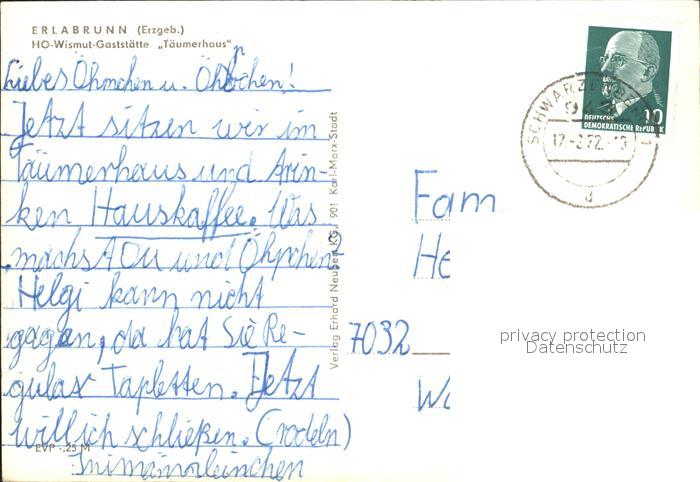 ERLABRUNN (Erzgeb.)
HO-Wismut-Gaststätte „Täumerhaus"
Liebes Öhmchen u. Öhpchen!
Jetzt sitzen wir im
Täumerhaus und drin-
ken Hauskaffee. Was
machst Du und Öhpchen?
Helgi kann nicht
gagen, da hat Sie Re-
gular Tapletten. Jetzt
will ich schließen. (rodeln)
EVP -,25 M
Verlag Erhard Neubert KG, 901 Karl-Marx-Stadt
SCHWARZENBERG
17.-2.72.
d
10
DEUTSCHE
DEMOKRATISCHE REPUBLIK
Fam
He
7032
privacy protection
Datenschutz